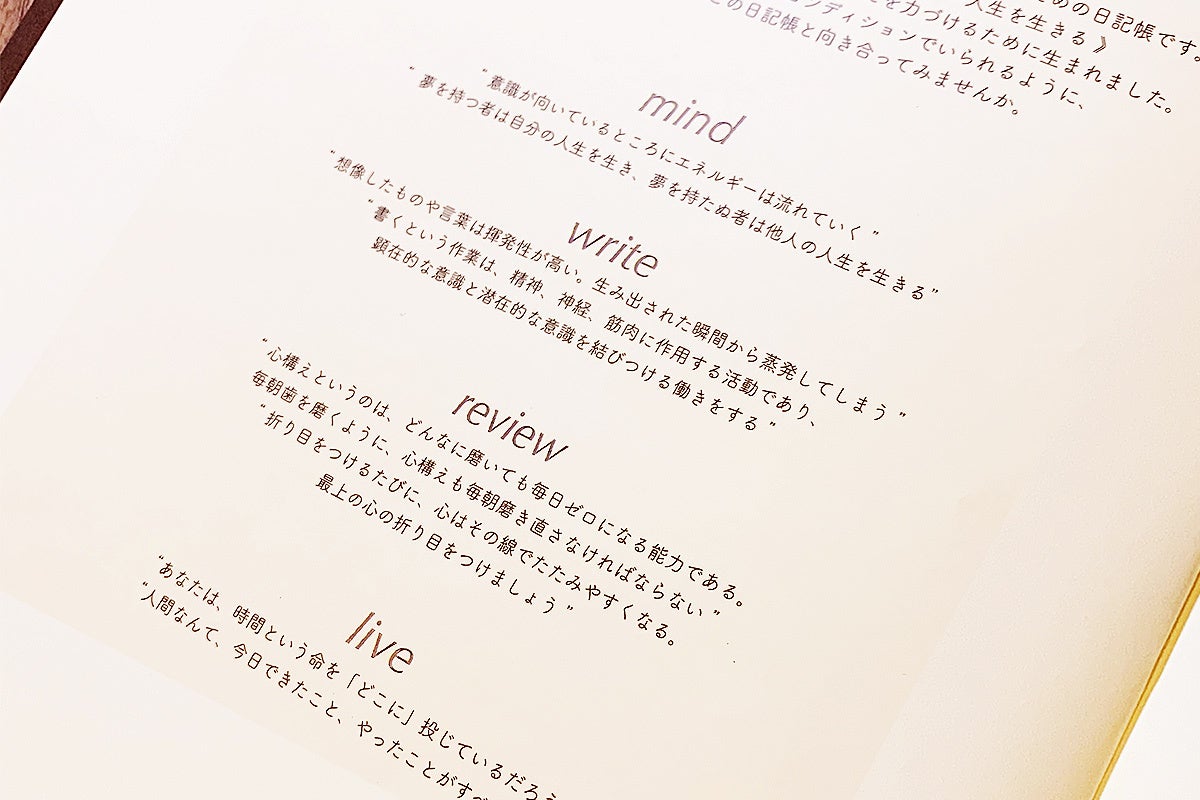 めの日記帳です。
人生を生きる》
を力づけるために生まれました。
ンディションでいられるように、
の日記帳と向き合ってみませんか。
mind
“意識が向いているところにエネルギーは流れていく”
“夢を持つ者は自分の人生を生き、夢を持たぬ者は他人の人生を生きる”
write
“想像したものや言葉は揮発性が高い。生み出された瞬間から蒸発してしまう”
“書くという作業は、精神、神経、筋肉に作用する活動であり、
顕在的な意識と潜在的な意識を結びつける働きをする”
review
“心構えというのは、どんなに磨いても毎日ゼロになる能力である。
毎朝歯を磨くように、心構えも毎朝磨き直さなければならない”
“折り目をつけるたびに、心はその線でたたみやすくなる。
最上の心の折り目をつけましょう”
live
“あなたは、時間という命を「どこに」投じているだろう
“人間なんて、今日できたこと、やったことがすべ